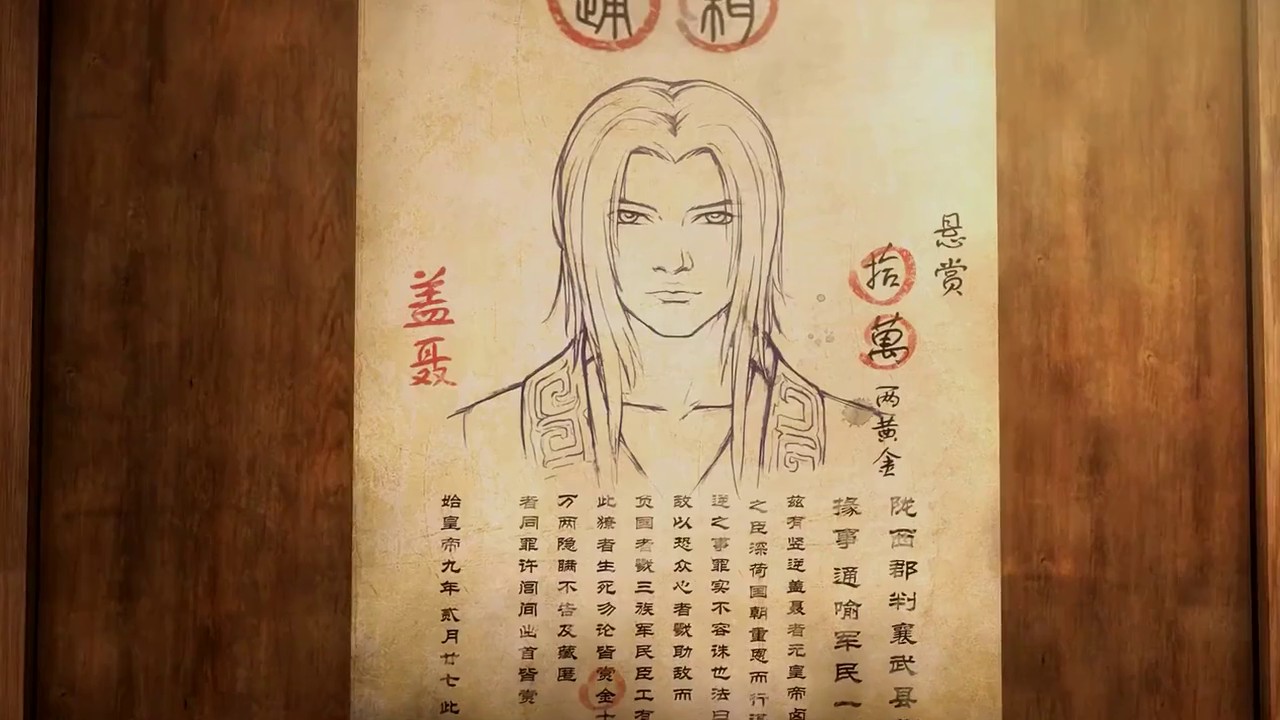 悬赏
拾萬两黄金
盖聂
陇西郡判襄武县
掾事通喻军民一
兹有竖逆盖聂者元皇帝卤
之臣深荷国朝重恩而行
逆之事罪实不容诛也法曰
敌以恐众心者戮助敌而
负国者戮三族军民臣工有
此獠者生死勿论皆赏金十
万两隐瞒不告及藏匿
者同罪许闾间出首皆赏
始皇帝九年贰月廿七此